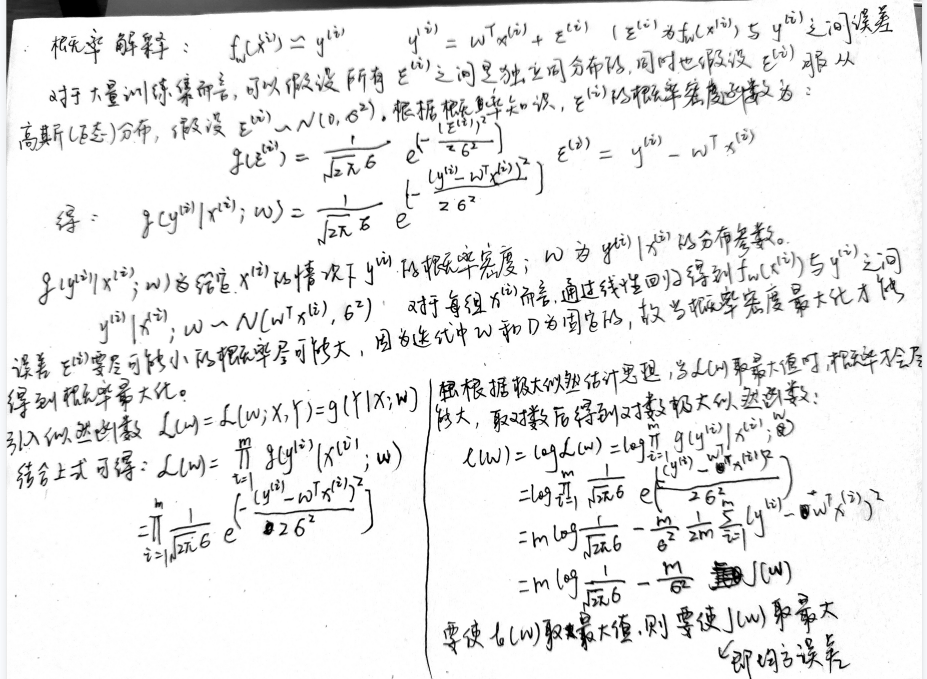 概率解释： f_w(x^(i)) ≃ y^(i)    y^(i) = w^T x^(i) + ε^(i) （ε^(i)为f_w(x^(i))与y^(i)之间误差
对于大量训练集而言，可以假设所有ε^(i)之间是独立同分布的，同时也假设ε^(i)服从
高斯(正态)分布，假设ε^(i)~N(0,σ²)。根据概率知识，ε^(i)的概率密度函数为：
g(ε^(i)) = 1/(√2π σ) e^[-(ε^(i))²/2σ²]    ε^(i) = y^(i) - w^T x^(i)
得： g(y^(i)|x^(i);w) = 1/(√2π σ) e^[-(y^(i)-w^T x^(i))²/2σ²]
g(y^(i)|x^(i);w)为给定x^(i)的情况下y^(i)的概率密度；w为y^(i)|x^(i)的分布参数。
y^(i)|x^(i);w ~ N(w^T x^(i),σ²) 对于每组x^(i)而言，通过线性回归得到f_w(x^(i))与y^(i)之间
误差ε^(i)要尽可能小的概率尽可能大，因为迭代中w和D为固定的，故当概率密度最大化才能
得到概率最大化。
引入似然函数 L(w)=L(w;X,Y)=g(Y|X;w)
结合上式可得：L(w)= ∏_{i=1}^m g(y^(i)|x^(i);w)
= ∏_{i=1}^m 1/(√2π σ) e^[-(y^(i)-w^T x^(i))²/2σ²]
根据极大似然估计思想，当L(w)取最大值时，概率才会尽
能大，取对数后得到对数极大似然函数：
ℓ(w) = log L(w) = log ∏_{i=1}^m g(y^(i)|x^(i);w)
= log ∏_{i=1}^m 1/(√2π σ) e^[-(y^(i)-w^T x^(i))²/2σ²]
= m log 1/(√2π σ) - m/σ² 1/2m ∑_{i=1}^m (y^(i)-w^T x^(i))²
= m log 1/(√2π σ) - m/σ² J(w)
要使ℓ(w)取最大值，则要使J(w)取最大
↙即均方误差